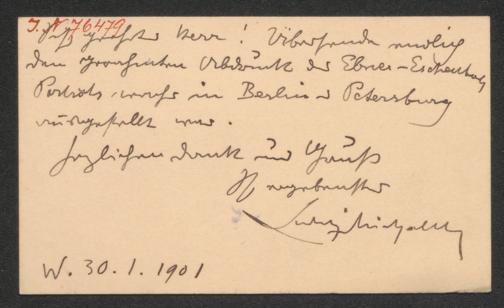 J. N 76479
Sehr geehrter Herr! Übersende endlich
den gewünschten Abdruck des Ebner-Eschenbach
Porträts, welches in Berlin u Petersburg
ausgestellt war.
Herzlichen Dank und Gruß
Ihr ergebenster
Ludwig Michalek
W. 30. 1. 1901